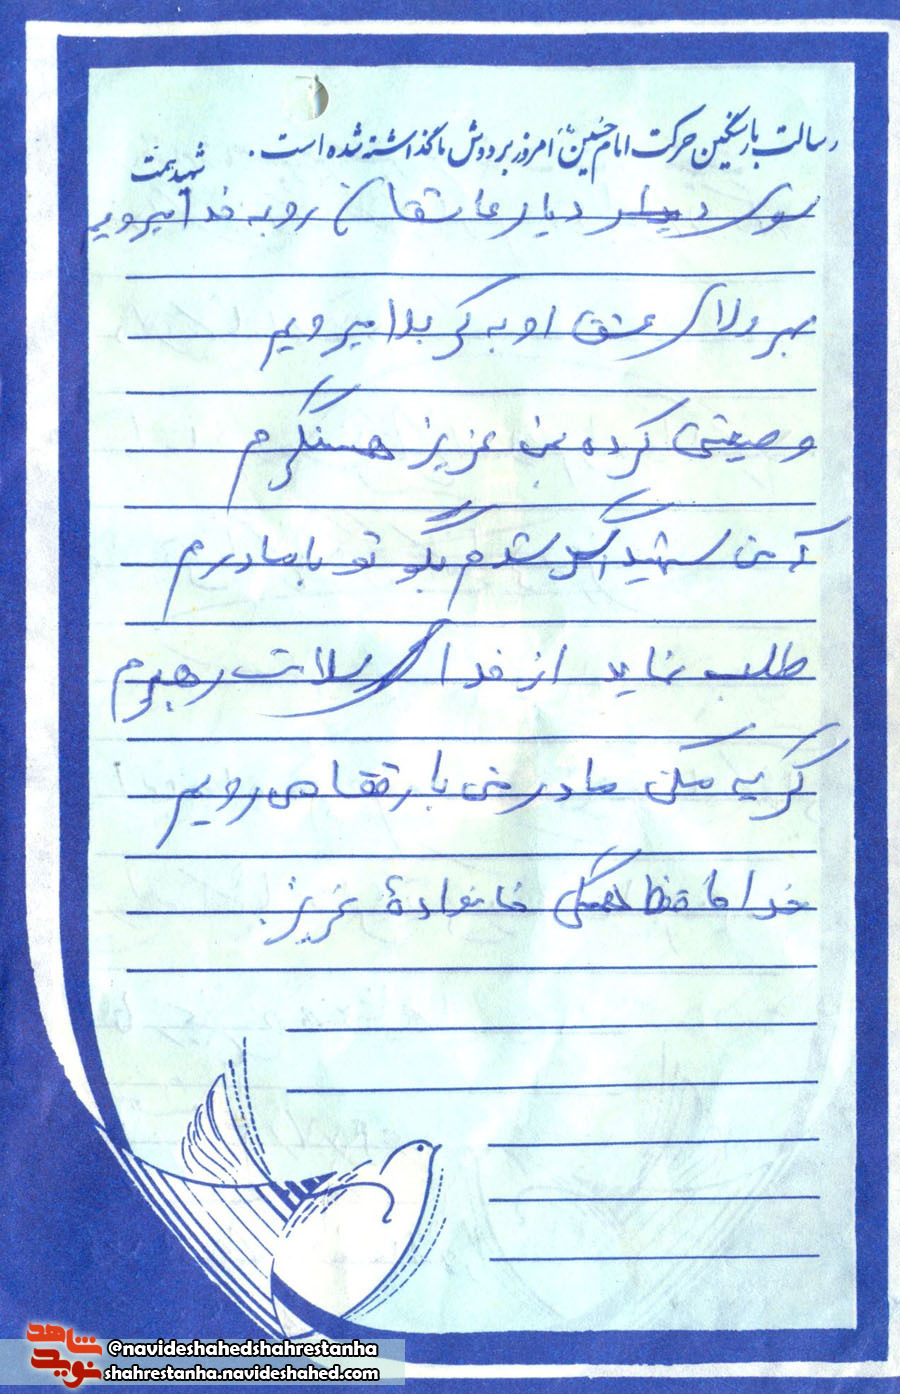 رسالت بار سنگین حرکت امام حسین (ع) امروز بر دوش ما گذاشته شده است.
شهید همت
سوی دیار عاشقان رو به خدا میرویم
بهر ولای عشق او به کربلا میرویم
وصیتی کرده بمن عزیز همسنگرم
که من شهید اگر شدم بگو تو با مادرم
طلب نماید از خدا سلامت رهبرم
گریه مکن مادر من با رفقا می رویم
خدا حافظ همگی خانوادهٔ عزیز.
شاهد
نوید
@navideshahedshahrestanha
shahrestanha.navideshahed.com